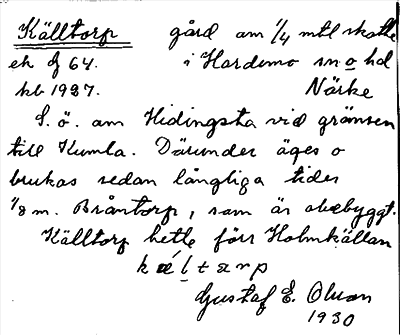 Källtorp gård om 1/4 mtl skatte
ek bl 64. i Hardemo sn o hd
kb 1927. Närke
S. ö. om Hidingsta vid gränsen
till Kumla. Därunder äges o
brukas sedan långliga tider
1/8 m. Bråntorp, som är obebyggt.
Källtorp hette förr Holmkällan
kæ̀ltɔrp
Gustaf E. Olsson
1930